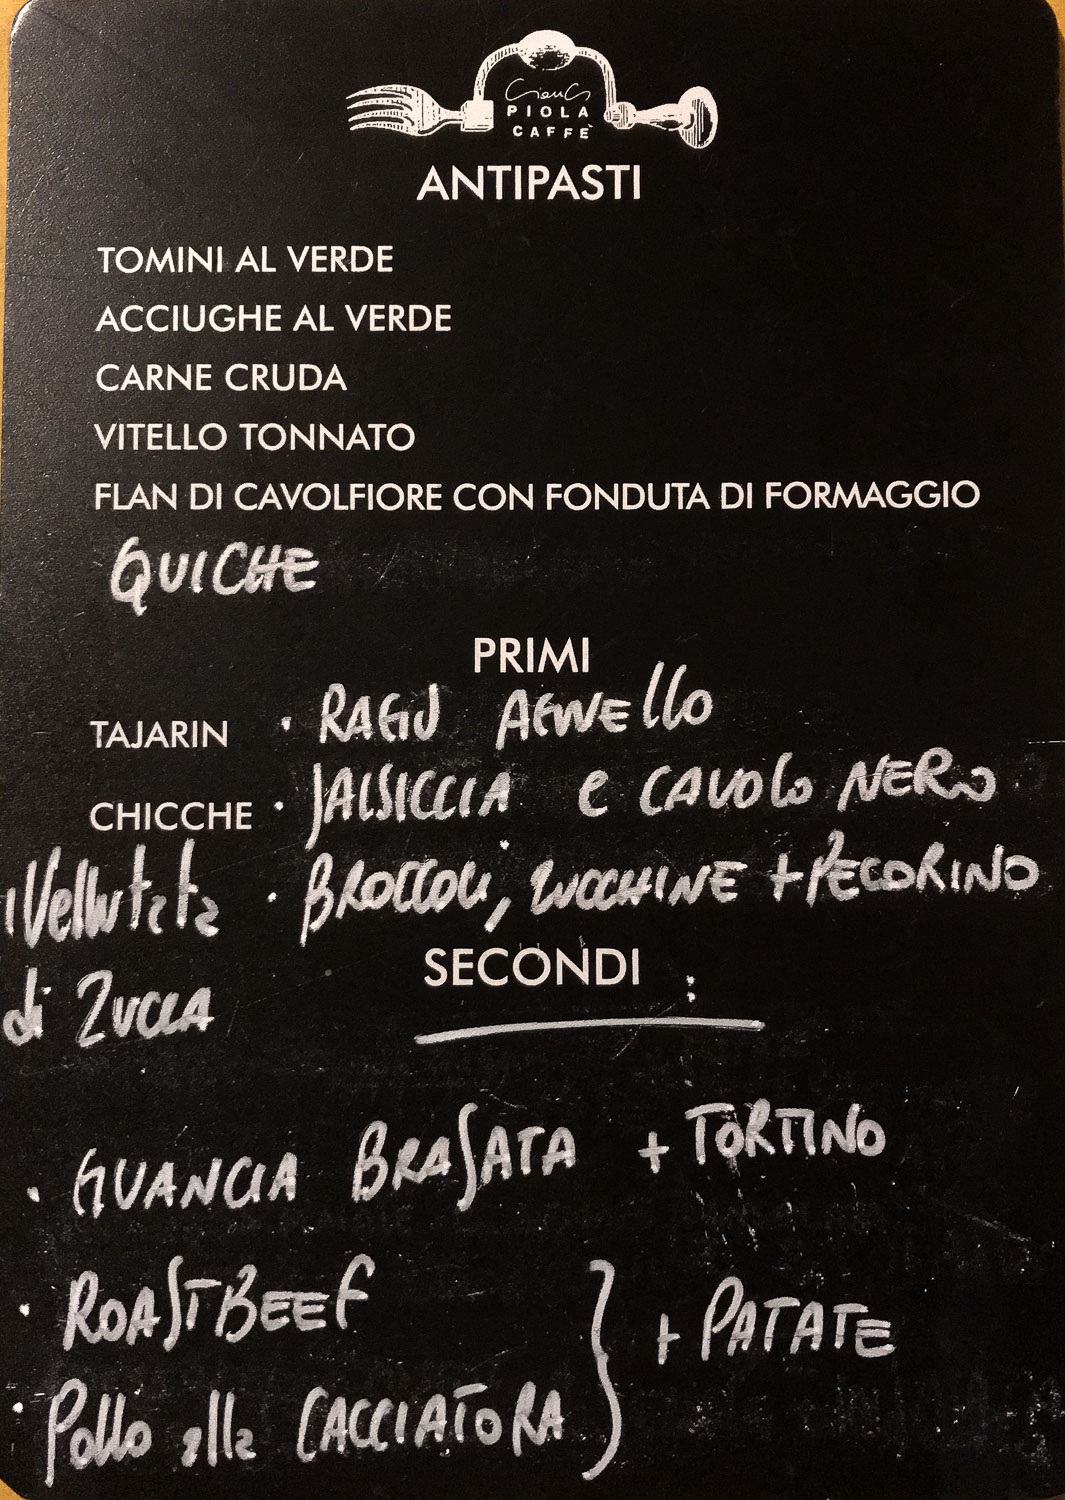 GianCa
PIOLA
CAFFÈ
ANTIPASTI
TOMINI AL VERDE
ACCIUGHE AL VERDE
CARNE CRUDA
VITELLO TONNATO
FLAN DI CAVOLFIORE CON FONDUTA DI FORMAGGIO
QUICHE
PRIMI
TAJARIN · RAGÙ AGNELLO
CHICCHE · SALSICCIA e CAVOLO NERO
Vellutata · BROCCOLI, ZUCCHINE + PECORINO
di ZUCCA
SECONDI :
· GUANCIA BRASATA + TORTINO
· ROASTBEEF
+ PATATE
· Pollo alla CACCIATORA